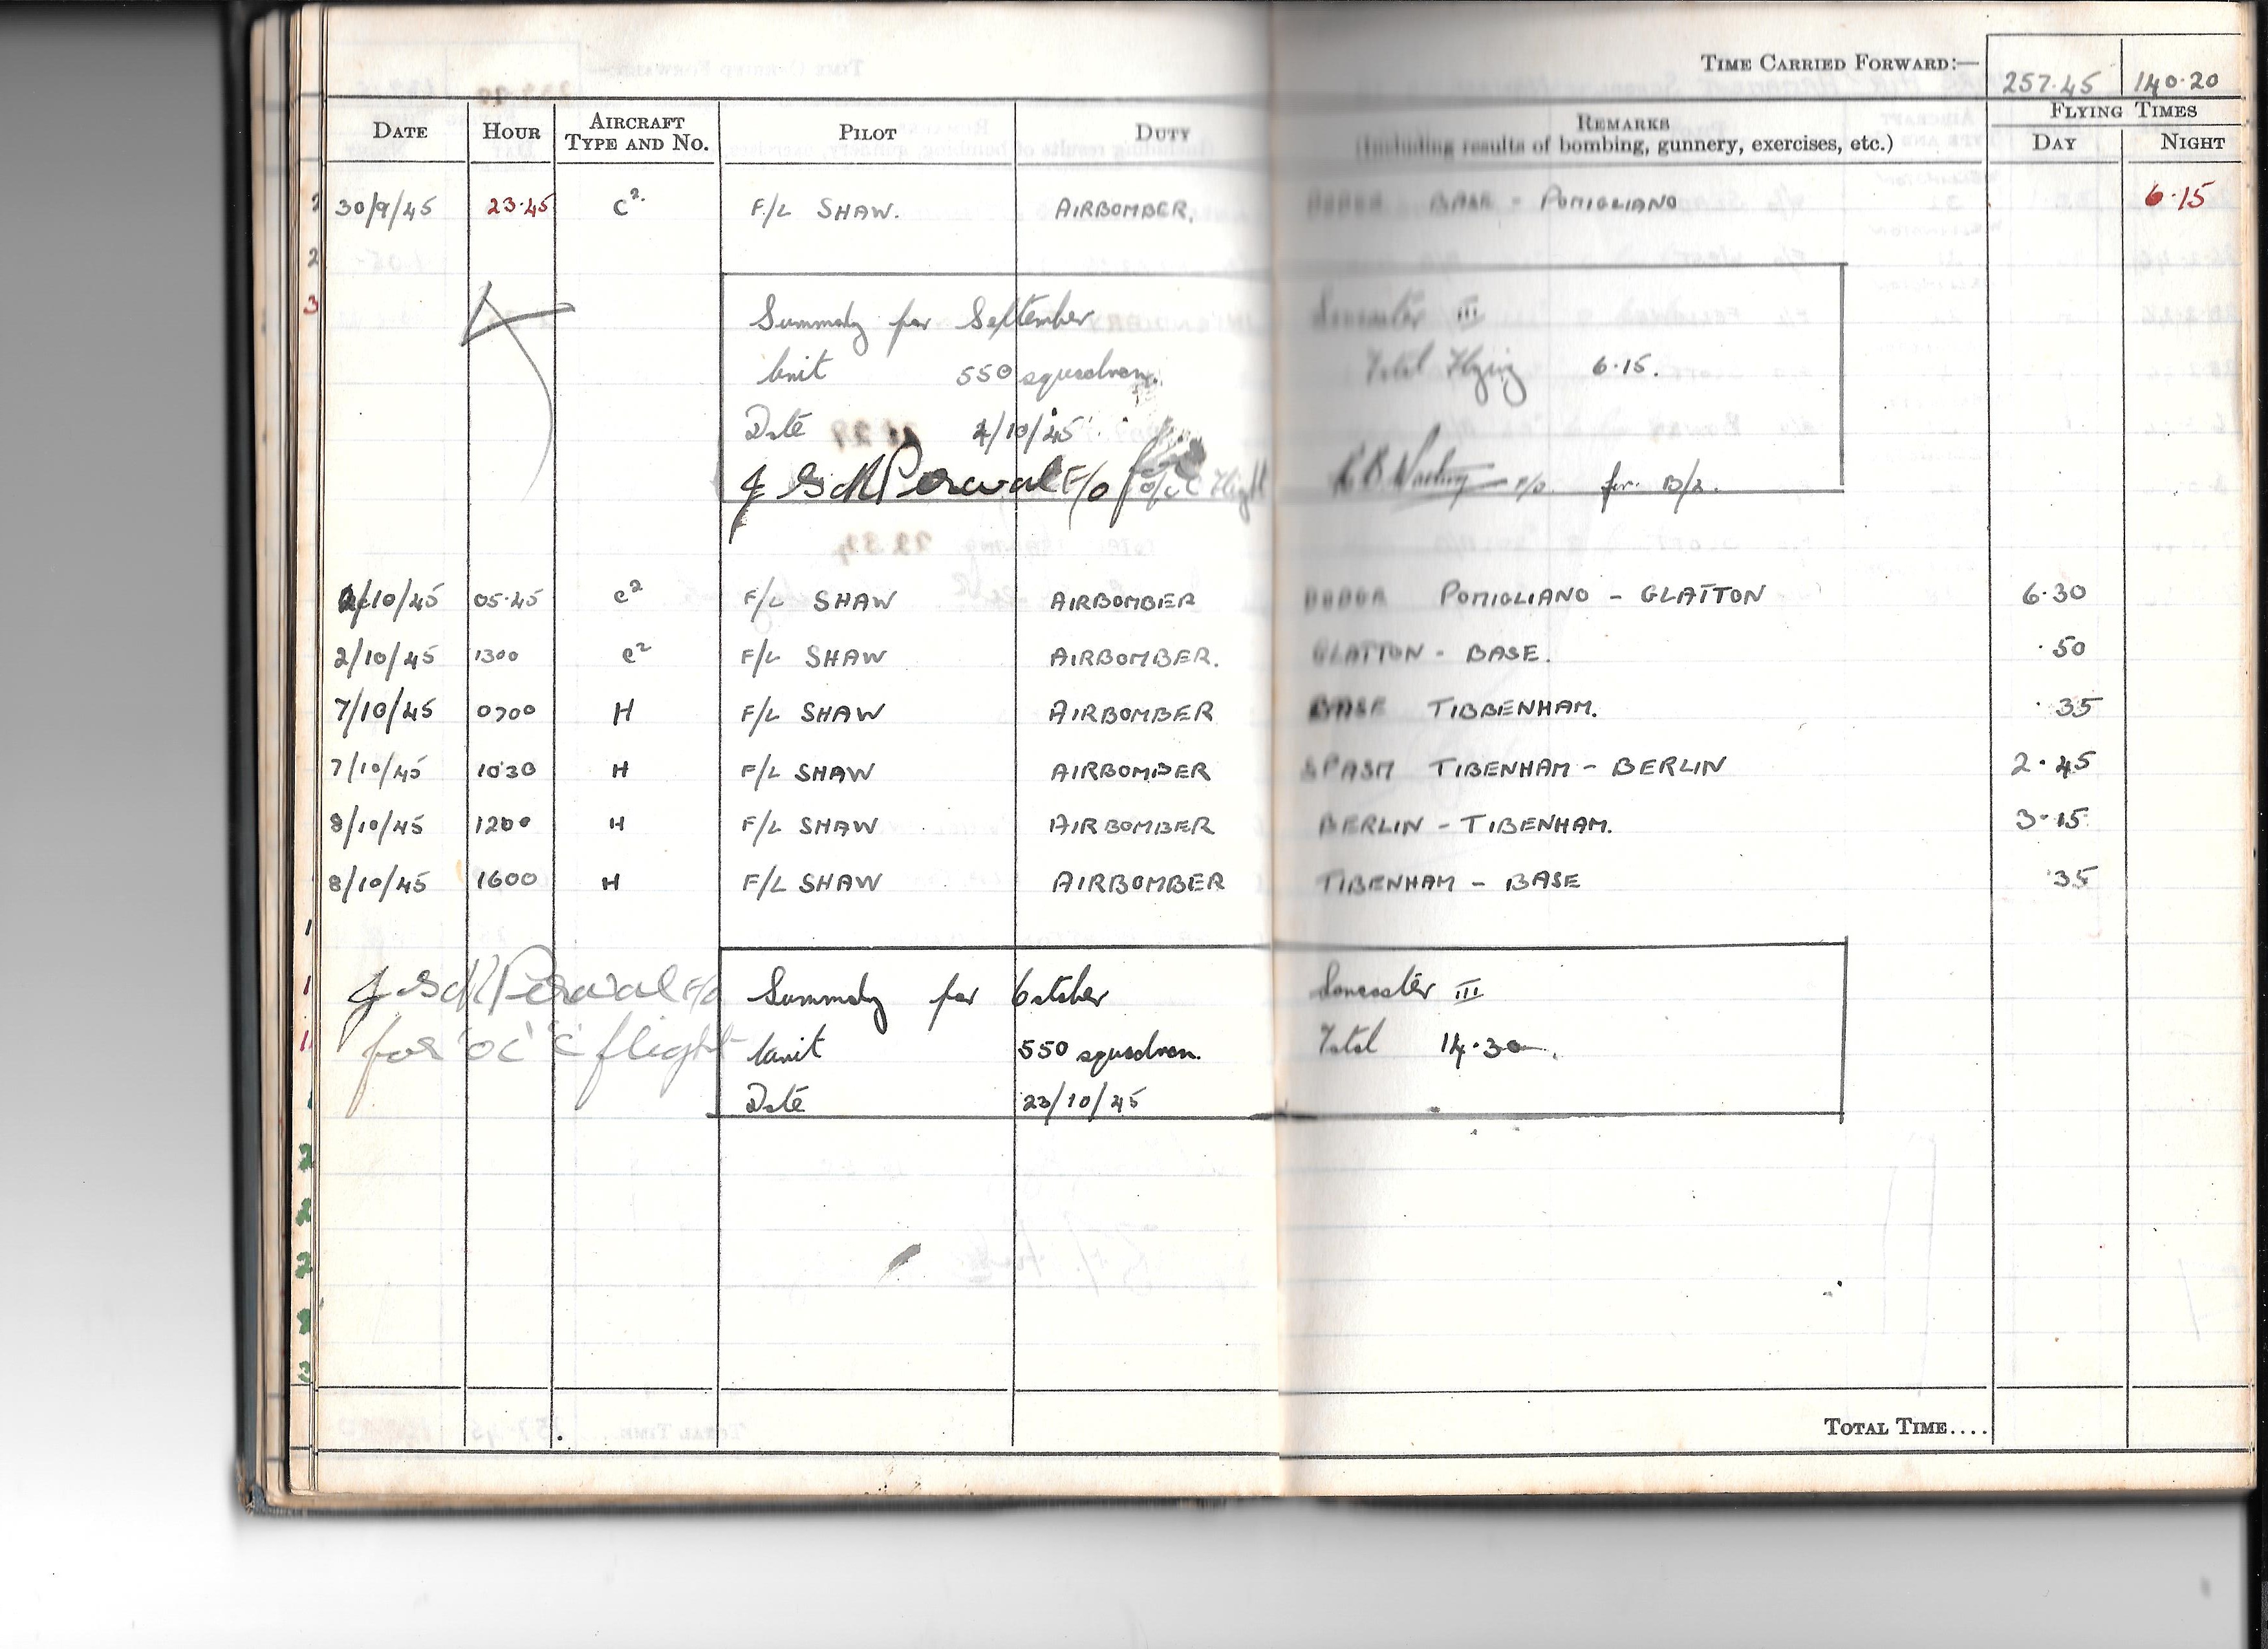 TIME CARRIED FORWARD:— 257.45 140.20
DATE HOUR AIRCRAFT TYPE AND NO. PILOT DUTY REMARKS (Including results of bombing, gunnery, exercises, etc.) FLYING TIMES DAY NIGHT
30/9/45 23.45 C2. F/L SHAW. AIRBOMBER. DODGE BASE - POMIGLIANO 6.15
Summary for September Lancaster III
Unit 550 squadron. Total Flying 6.15.
Date 4/10/45
Percival F/O for o/c C Flight F/O. for
2/10/45 05.45 C2 F/L SHAW AIRBOMBER DODGE POMIGLIANO - GLATTON 6.30
2/10/45 1300 C2 F/L SHAW AIRBOMBER. GLATTON - BASE. .50
7/10/45 0700 H F/L SHAW AIRBOMBER BASE TIBBENHAM. .35
7/10/45 1030 H F/L SHAW AIRBOMBER SPASM TIBENHAM - BERLIN 2.45
8/10/45 1200 H F/L SHAW AIRBOMBER BERLIN - TIBENHAM. 3.15
8/10/45 1600 H F/L SHAW AIRBOMBER TIBENHAM - BASE .35
Percival F/O Summary for October Lancaster III
for 'OC' 'C' flight Unit 550 squadron. Total 14.30.
Date 23/10/45
TOTAL TIME....